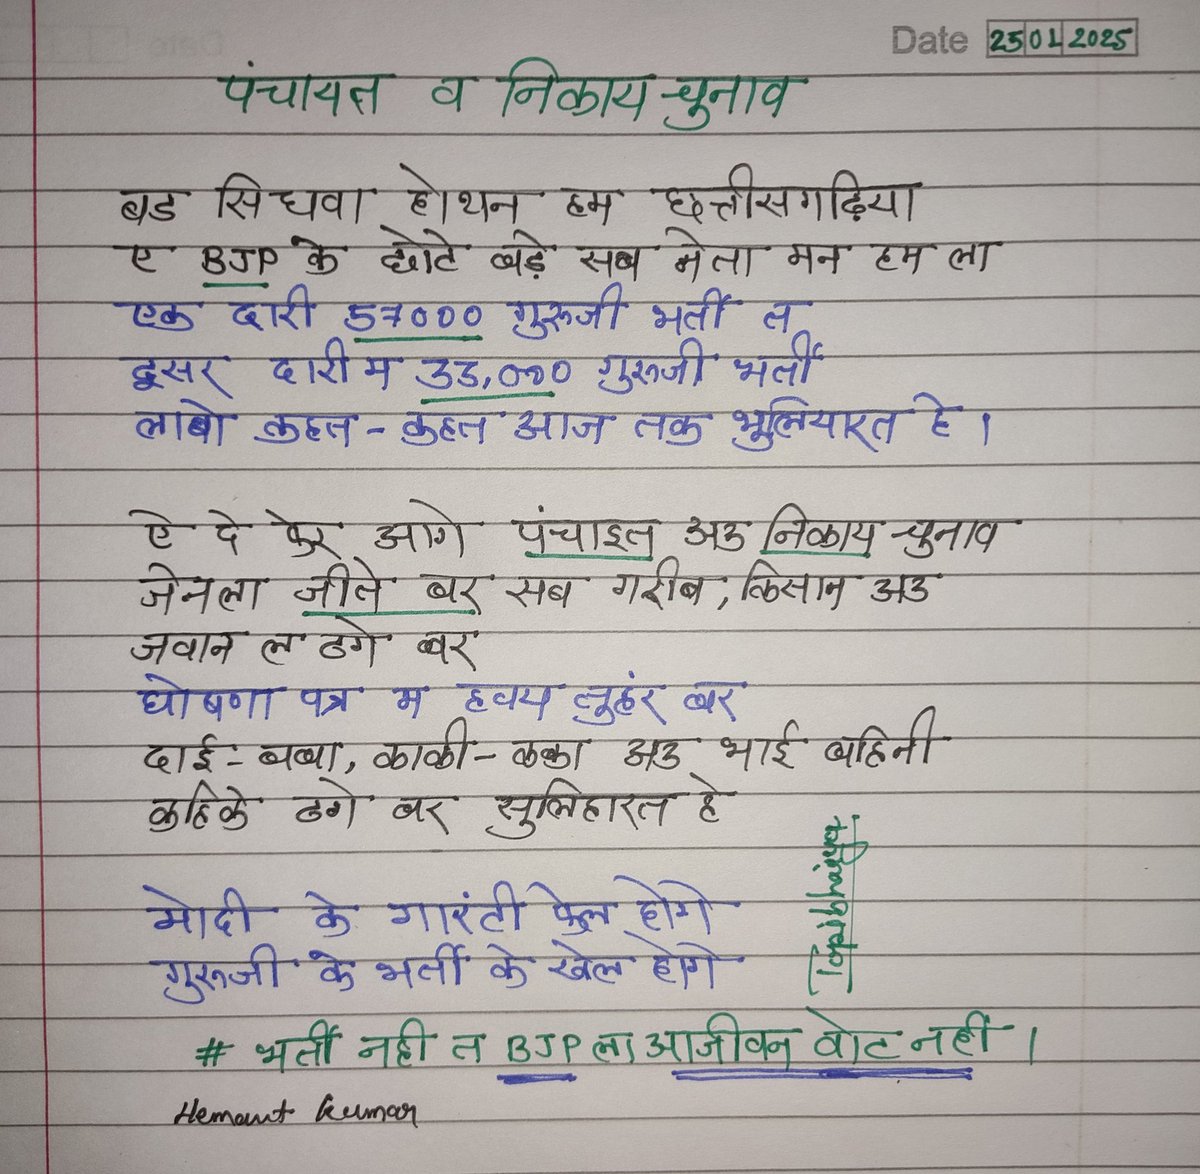 Date 25 01 2025
पंचायत व निकाय चुनाव
बड सिधवा होथन हम छत्तीसगढ़िया
ए BJP के छोटे बड़े सब नेता मन हम ला
एक दारी 57000 गुरुजी भर्ती त
दूसर दारी म 33,000 गुरुजी भर्ती
लाबो कहत - कहत आज तक भुलियारत हे ।
ऐ दे फेर आगे पंचाइत अउ निकाय चुनाव
जेनला जीते बर सब गरीब, किसान अउ
जवान ल ठगे बर
घोषणा पत्र म हवय तुहंर बर
दाई - बबा, काकी - कका अउ भाई बहिनी
कहिके ठगे बर सुलिहारत हे
मोदी के गारंटी फेल होगे
गुरुजी के भर्ती के खेल होगे
# भर्ती नही त BJP ला आजीवन वोट नहीं ।
Hemant Kumar